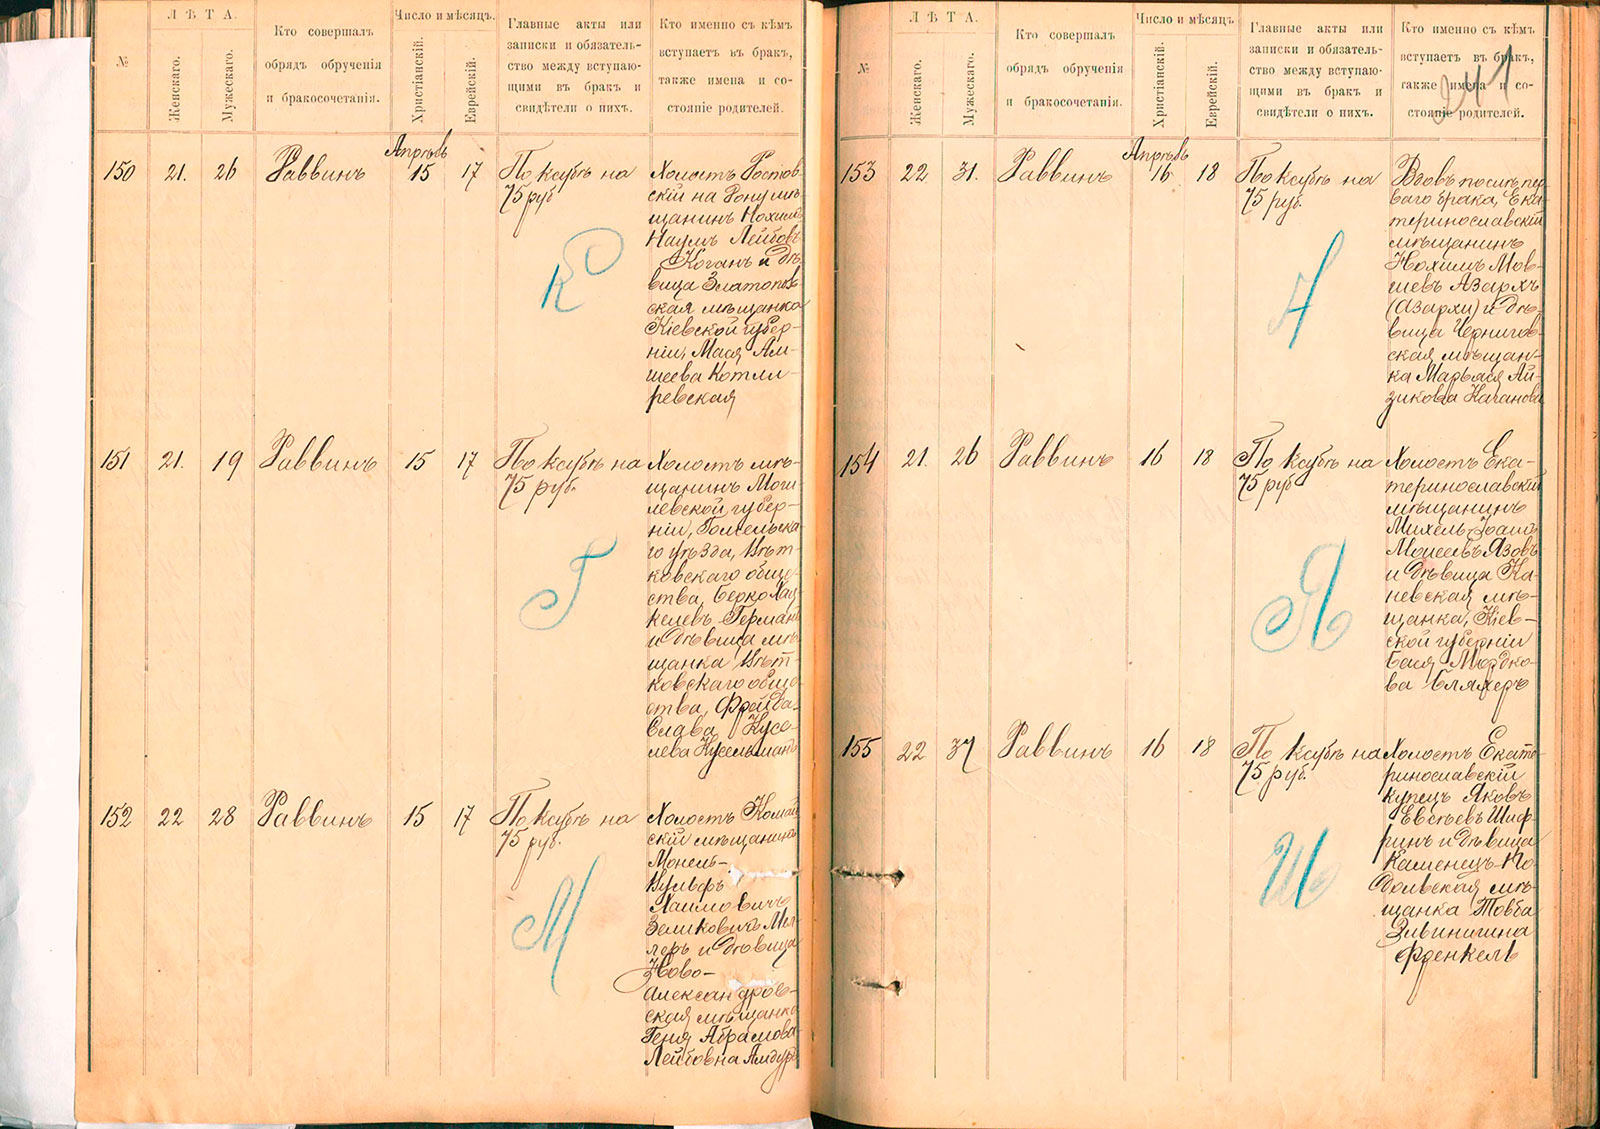 №
ЛѢТА.
Женскаго.
Мужескаго.
Кто совершалъ
обрядъ обрученія
и бракосочетанія.
Число и мѣсяцъ.
Христіанскій.
Еврейскій.
Главные акты или
записки и обязатель-
ство между вступаю-
щими въ бракъ и
свидѣтели о нихъ.
Кто именно съ кѣмъ
вступаетъ въ бракъ,
также имена и со-
стояніе родителей.
Апрѣль
150 21. 26 Раввинъ 15 17 По ксубѣ на
75 руб
К
Холостъ Ростов-
скій на Дону мѣ-
щанинъ Нохимъ
Наумъ Лейбовъ
Коганъ и дѣ-
вица Златополь-
ская мѣщанка
Кіевской губер-
ніи, Мася Ам-
шеева Котля-
ревская
151 21. 19 Раввинъ 15 17 По ксубѣ на
75 руб.
Г
Холостъ мѣ-
щанинъ Моги-
левской губер-
ніи, Гомельска-
го уѣзда, Вѣт-
ковскаго обще-
ства, Берко Хац-
келевъ Германъ
и дѣвица мѣ-
щанка Вѣт-
ковскаго обще-
ства, Фрейда-
Слава Кусе-
лева Кусельманъ
152 22 28 Раввинъ 15 17 По ксубѣ на
75 руб.
М
Холостъ
скій мѣщанинъ
Вульфъ
Хаимовичъ
Зеликовичъ Мил-
леръ и дѣвица
Ново-
Александров-
ская мѣщанка
Геня Абрамова-
Лейбовна Амдуръ
№
ЛѢТА.
Женскаго.
Мужескаго.
Кто совершалъ
обрядъ обрученія
и бракосочетанія.
Число и мѣсяцъ.
Христіанскій.
Еврейскій.
Главные акты или
записки и обязатель-
ство между вступаю-
щими въ бракъ и
свидѣтели о нихъ.
Кто именно съ кѣмъ
вступаетъ въ бракъ,
также имена и со-
стояніе родителей.
241
Апрѣль
153 22 31. Раввинъ 16 18 По ксубѣ на
75 руб.
А
Вдовъ послѣ пер-
ваго брака, Ека-
теринославскій
мѣщанинъ
Нохимъ Мов-
шевъ Азархъ
(Азархи) и дѣ-
вица Чернигов-
ская мѣщан-
ка Марьяся Ай-
зикова Каганова
154 21. 26 Раввинъ 16 18 По ксубѣ на
75 руб
Я
Холостъ Ека-
теринославскій
мѣщанинъ
Михель-
Моисеевъ Язовъ
и дѣвица Ка-
невская мѣ-
щанка, Кіев-
ской губерніи
Бася Мордко-
ва Бляхеръ
155 22 37 Раввинъ 16 18 По ксубѣ на
75 руб.
Ш
Холостъ Екате-
ринославскій
купецъ Яковъ
Евсѣевъ Шиф-
ринъ и дѣвица
Каменецъ-По-
дольская мѣ-
щанка Товба
Френкель